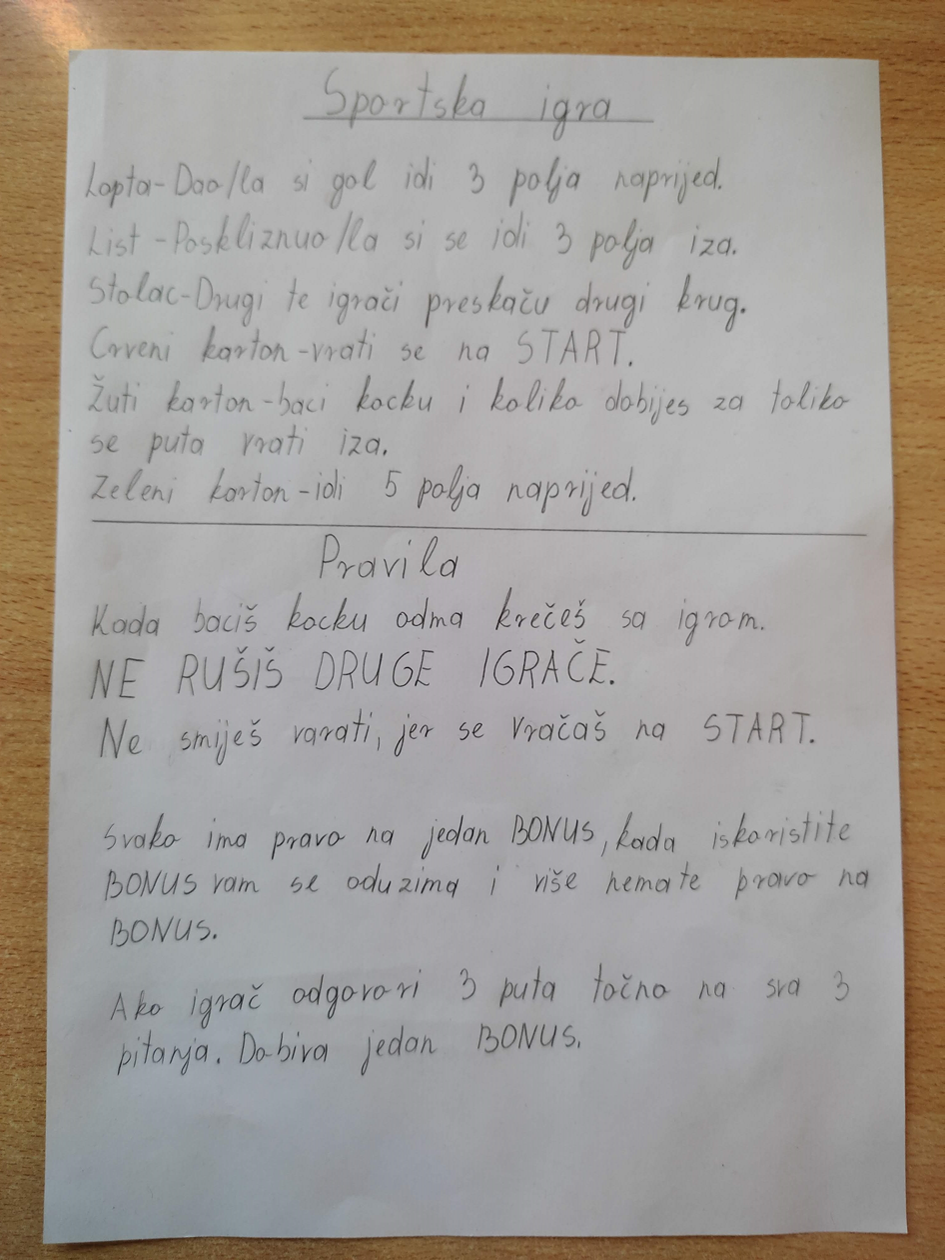 Sportska igra
Lopta-Dao/la si gol idi 3 polja naprijed.
List-Poskliznuo/la si se idi 3 polja iza.
Stolac-Drugi te igrači preskaču drugi krug.
Crveni karton-vrati se na START.
Žuti karton-baci kocku i koliko dobijes za toliko
se puta vrati iza.
Zeleni karton-idi 5 polja naprijed.
Pravila
Kada baciš kocku odma krečeš sa igrom.
NE RUŠIŠ DRUGE IGRAČE.
Ne smiješ varati, jer se vračaš na START.
Svako ima pravo na jedan BONUS, kada iskoristite
BONUS vam se oduzima i više nemate pravo na
BONUS.
Ako igrač odgovori 3 puta točno na sva 3
pitanja. Dobiva jedan BONUS.